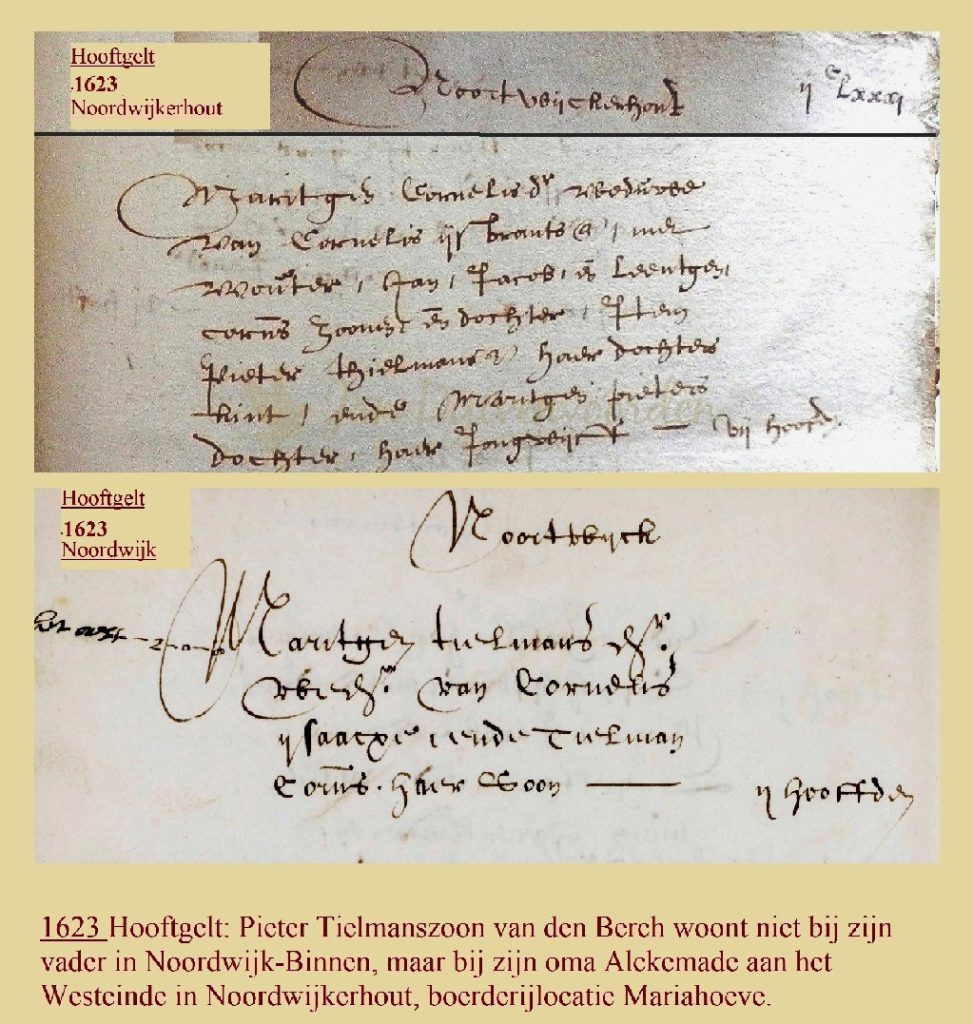 Hooftgelt
1623
Noordwijkerhout
Noortwijckerhout
ij C Lxxxj
Maritgen Cornelis dr weduwee
van Cornelis ijsbrantsz, met
Wouter, Jan, Jacob, en Leentgen,
corns zoonen en dochter, Item
Pieter thielmansz haer dochters
kint, ende Maritgen pieters
dochter, haer Jongwijff — vij hoofd
Hooftgelt
1623
Noordwijk
Noortwijck
Maritgen tielmans dr.
wedr. van Cornelis
ijsaacxe, ende Tielman
Corns. haer Soon — ij hooffden
1623 Hooftgelt: Pieter Tielmanszoon van den Berch woont niet bij zijn
vader in Noordwijk-Binnen, maar bij zijn oma Alekemade aan het
Westeinde in Noordwijkerhout, boerderijlocatie Mariahoeve.